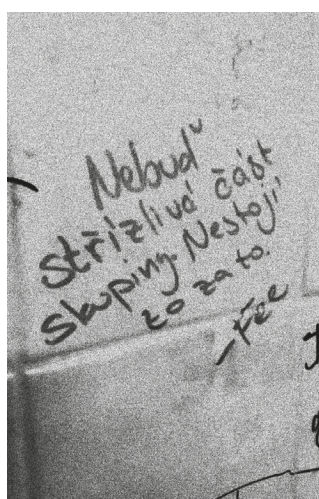 Nebuď
střízlivá část
skupiny. Nestojí
to za to.
– Fee